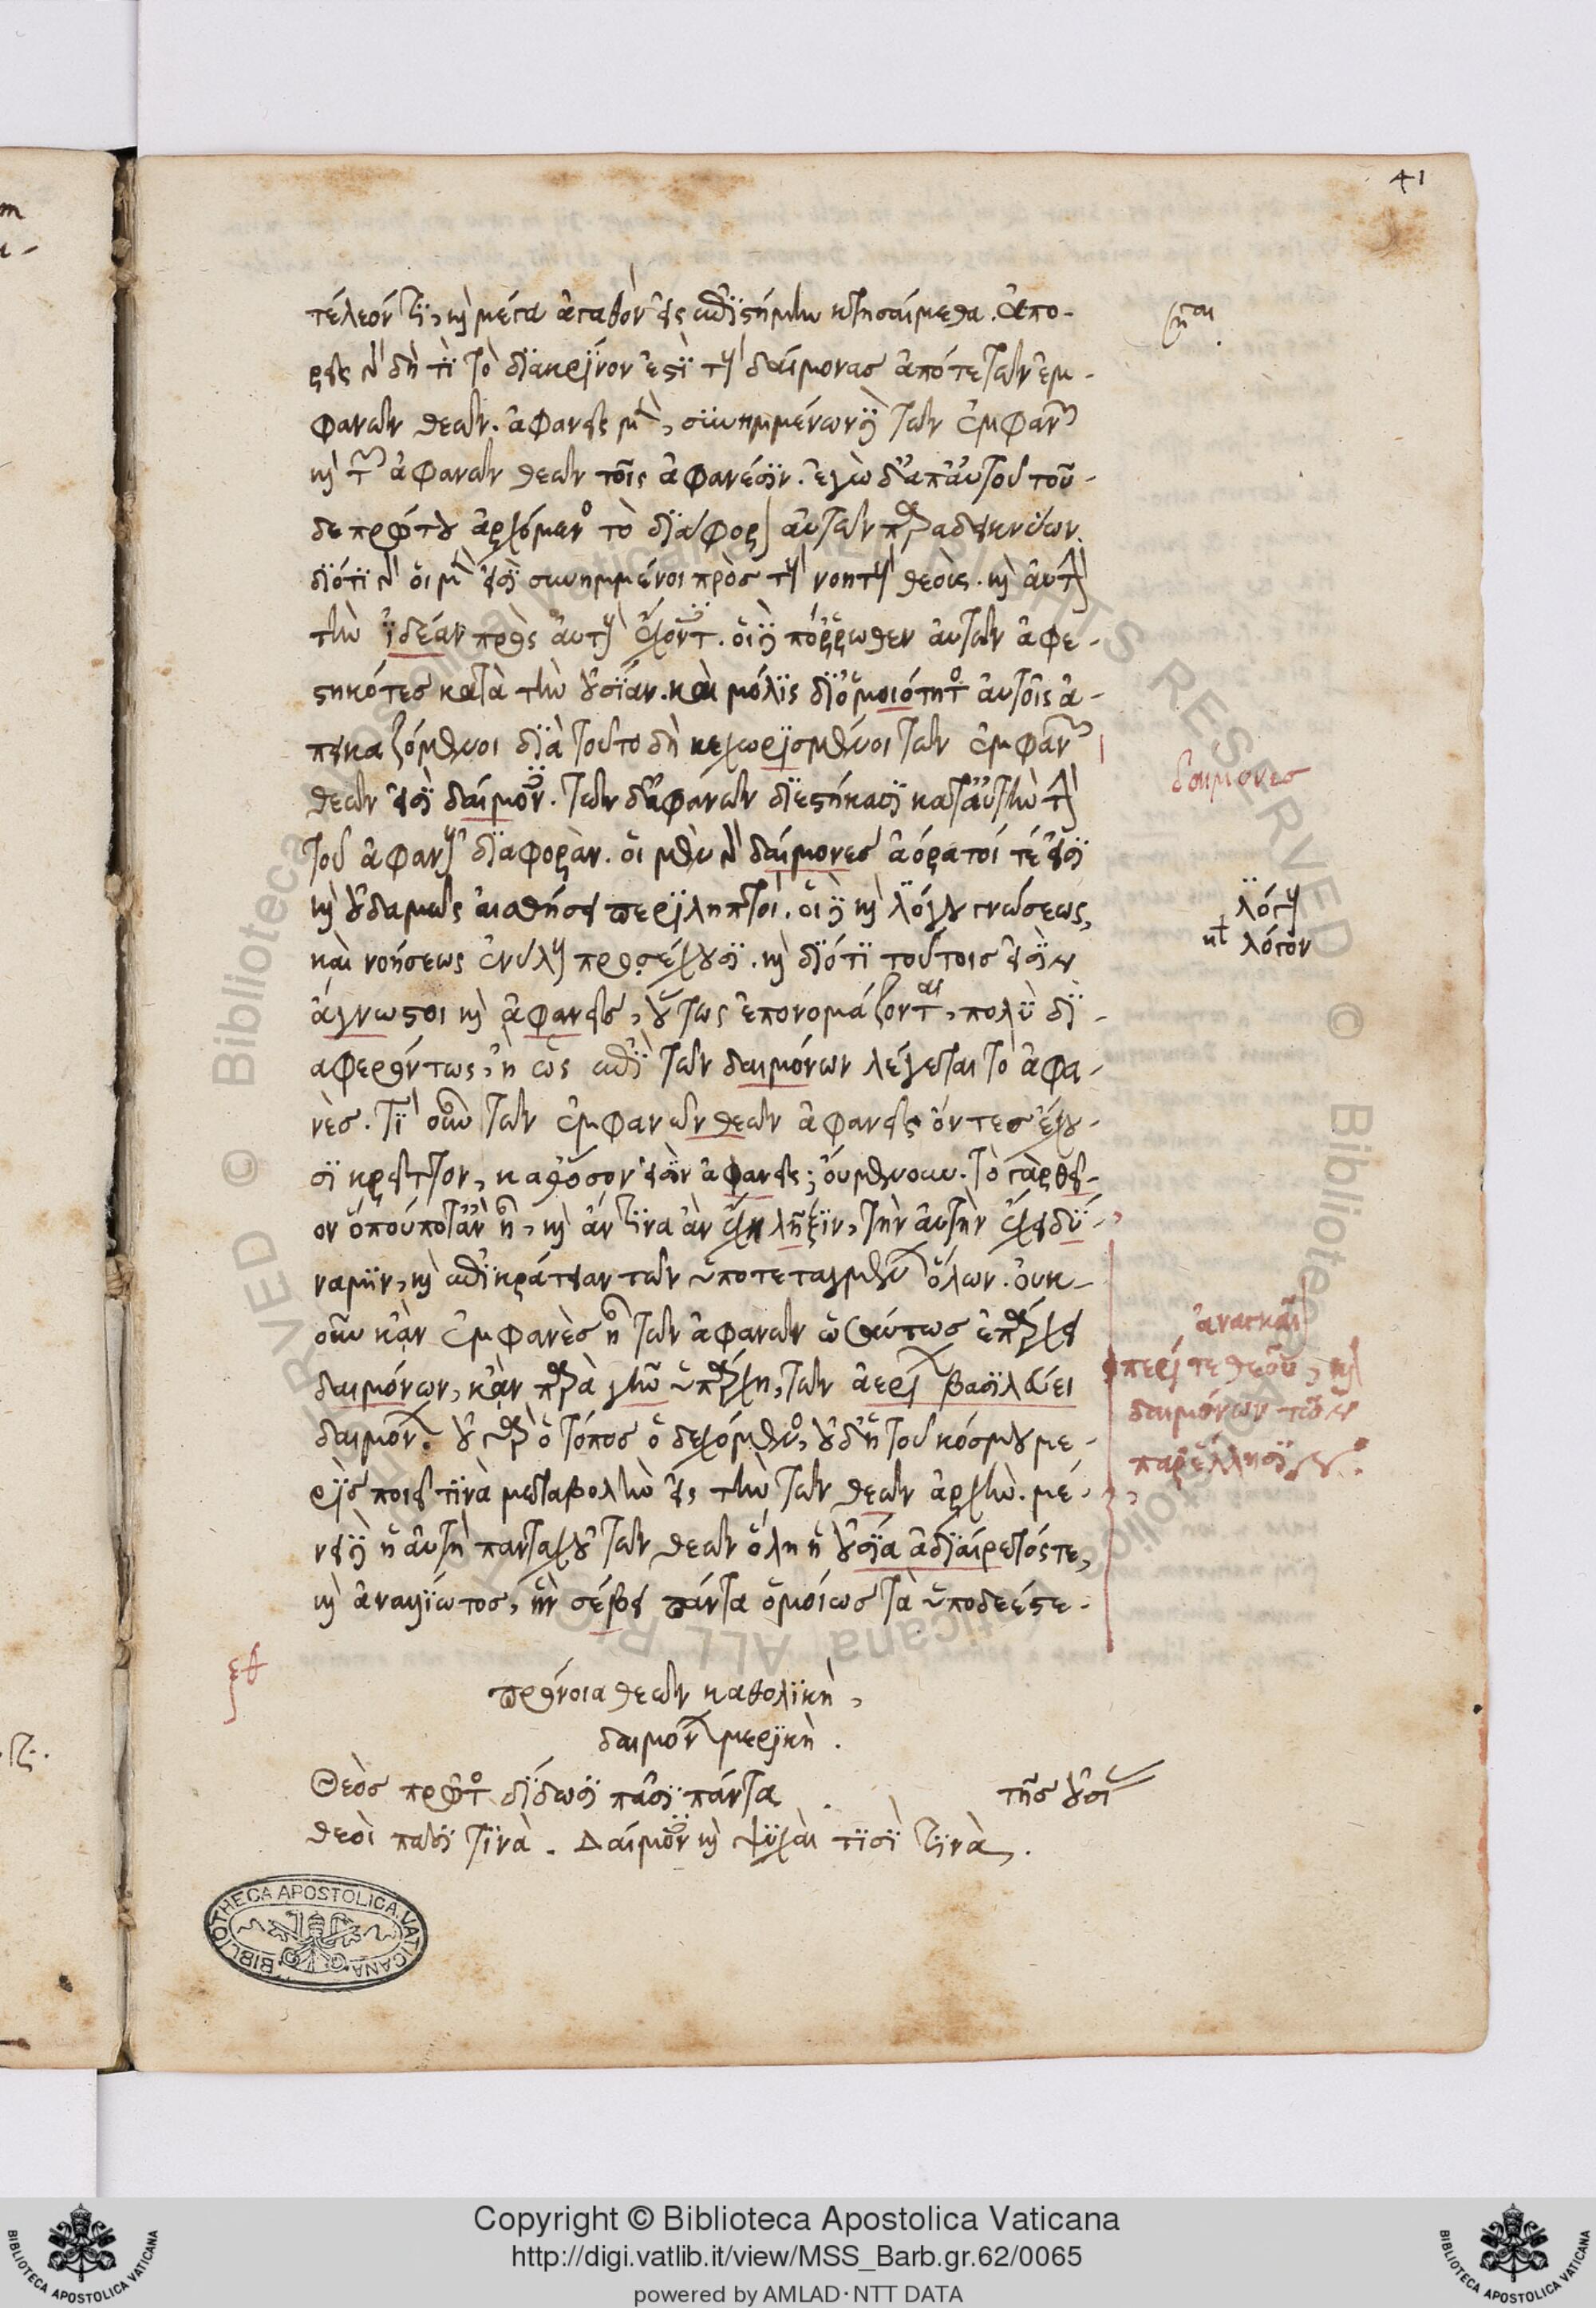 41
τέλεόν τι, καὶ μέγα ἀγαθὸν εἰς ἐπιστήμην κτησαίμεθα. ἀπο-
ρεῖς γὰρ δὴ τί τὸ διακρῖνόν ἐστι τοὺς δαίμονας ἀπό τε τῶν ἐμ-
φανῶν θεῶν. ἀφανεῖς μὲν, συνημμένων δὲ τῶν ἐμφανῶν
καὶ τῶν ἀφανῶν θεῶν τοῖς ἀφανέσιν. ἐγὼ δ' ἀπ' αὐτοῦ τοῦ-
δε πρώτου ἀρχόμενος τὸ διάφορον αὐτῶν παραδεικνύων.
διότι γὰρ οἱ μὲν εἰσὶ συνημμένοι πρὸς τοὺς νοητοὺς θεοῖς. καὶ αὐτὴν
τὴν ἰδέαν πρὸς αὐτοὺς ἔχοντες. οἱ δὲ πόῤῥωθεν αὐτῶν ἀφε-
στηκότες κατὰ τὴν οὐσίαν. καὶ μόλις δι' ὁμοιότητος αὐτοῖς ἀ-
πεικαζόμενοι διὰ τοῦτο δὴ κεχωρισμένοι τῶν ἐμφανῶν
θεῶν εἰσὶ δαίμονες. τῶν δ' ἀφανῶν διεστήκασι κατ' αὐτὴν τὴν
τοῦ ἀφανοῦς διαφοράν. οἱ μὲν γὰρ δαίμονες ἀόρατοί τέ εἰσι
καὶ οὐδαμῶς αἰσθήσει περιληπτοὶ. οἱ δὲ καὶ λόγου γνώσεως,
καὶ νοήσεως ἐνύλου προσέχουσι. καὶ διότι τούτοις εἰσὶν
ἄγνωστοι καὶ ἀφανεῖς, οὕτως ἐπονομάζονται, πολὺ δι-
αφερόντως, ἢ ὡς ἐπὶ τῶν δαιμόνων λέγεται τὸ ἀφα-
νὲς. τί οὖν τῶν ἐμφανῶν θεῶν ἀφανεῖς ὄντες ἔχου-
σι κρεῖττον, καθ' ὅσον εἰσὶν ἀφανεῖς; οὐμενοῦν. τὸ γὰρ θεῖ-
ον ὅπου ποτ' ἂν ᾖ, καὶ ἄν τινα ἂν ἔχῃ λῆξιν, τὴν αὐτὴν ἔχει δύ-
ναμιν, καὶ ἐπικράτειαν τῶν ὑποτεταγμένων ὅλων. οὐκ-
οῦν κἂν ἐμφανὲς ᾖ τῶν ἀφανῶν ὡσαύτως ἐπάρχει
δαιμόνων, κἂν παρὰ γῆν ὑπάρχῃ, τῶν ἀερίων βασιλεύει
δαιμόνων. οὐ γὰρ ὁ τόπος ὁ δεχόμενος, οὐδ' ἡ τοῦ κόσμου με-
ρὶς ποιεῖ τινὰ μεταβολὴν εἰς τὴν τῶν θεῶν ἀρχὴν. μέ-
νει δὲ ἡ αὐτὴ πανταχοῦ τῶν θεῶν ὅλη ἡ οὐσία ἀδιαίρετός τε,
καὶ ἀναλλοίωτος, ἣν σέβει πάντα ὁμοίως τὰ ὑποδεέστε-
δαίμονες
λόγου
λόγον
περί τε θεῶν, καὶ
δαιμόνων τῶν
παρ' ἕλλησι
πρόνοια θεῶν καθολικὴ,
δαιμόνων μερικὴ.
Θεὸς πρῶτος δίδωσι πᾶσι πάντα
τῆς οὐσι
θεοὶ πᾶσι τινὰ. Δαίμονες καὶ ψυχαὶ τισὶ τινὰ.
BIBLIOTHECA APOSTOLICA VATICANA
Copyright © Biblioteca Apostolica Vaticana
http://digi.vatlib.it/view/MSS_Barb.gr.62/0065
powered by AMLAD · NTT DATA